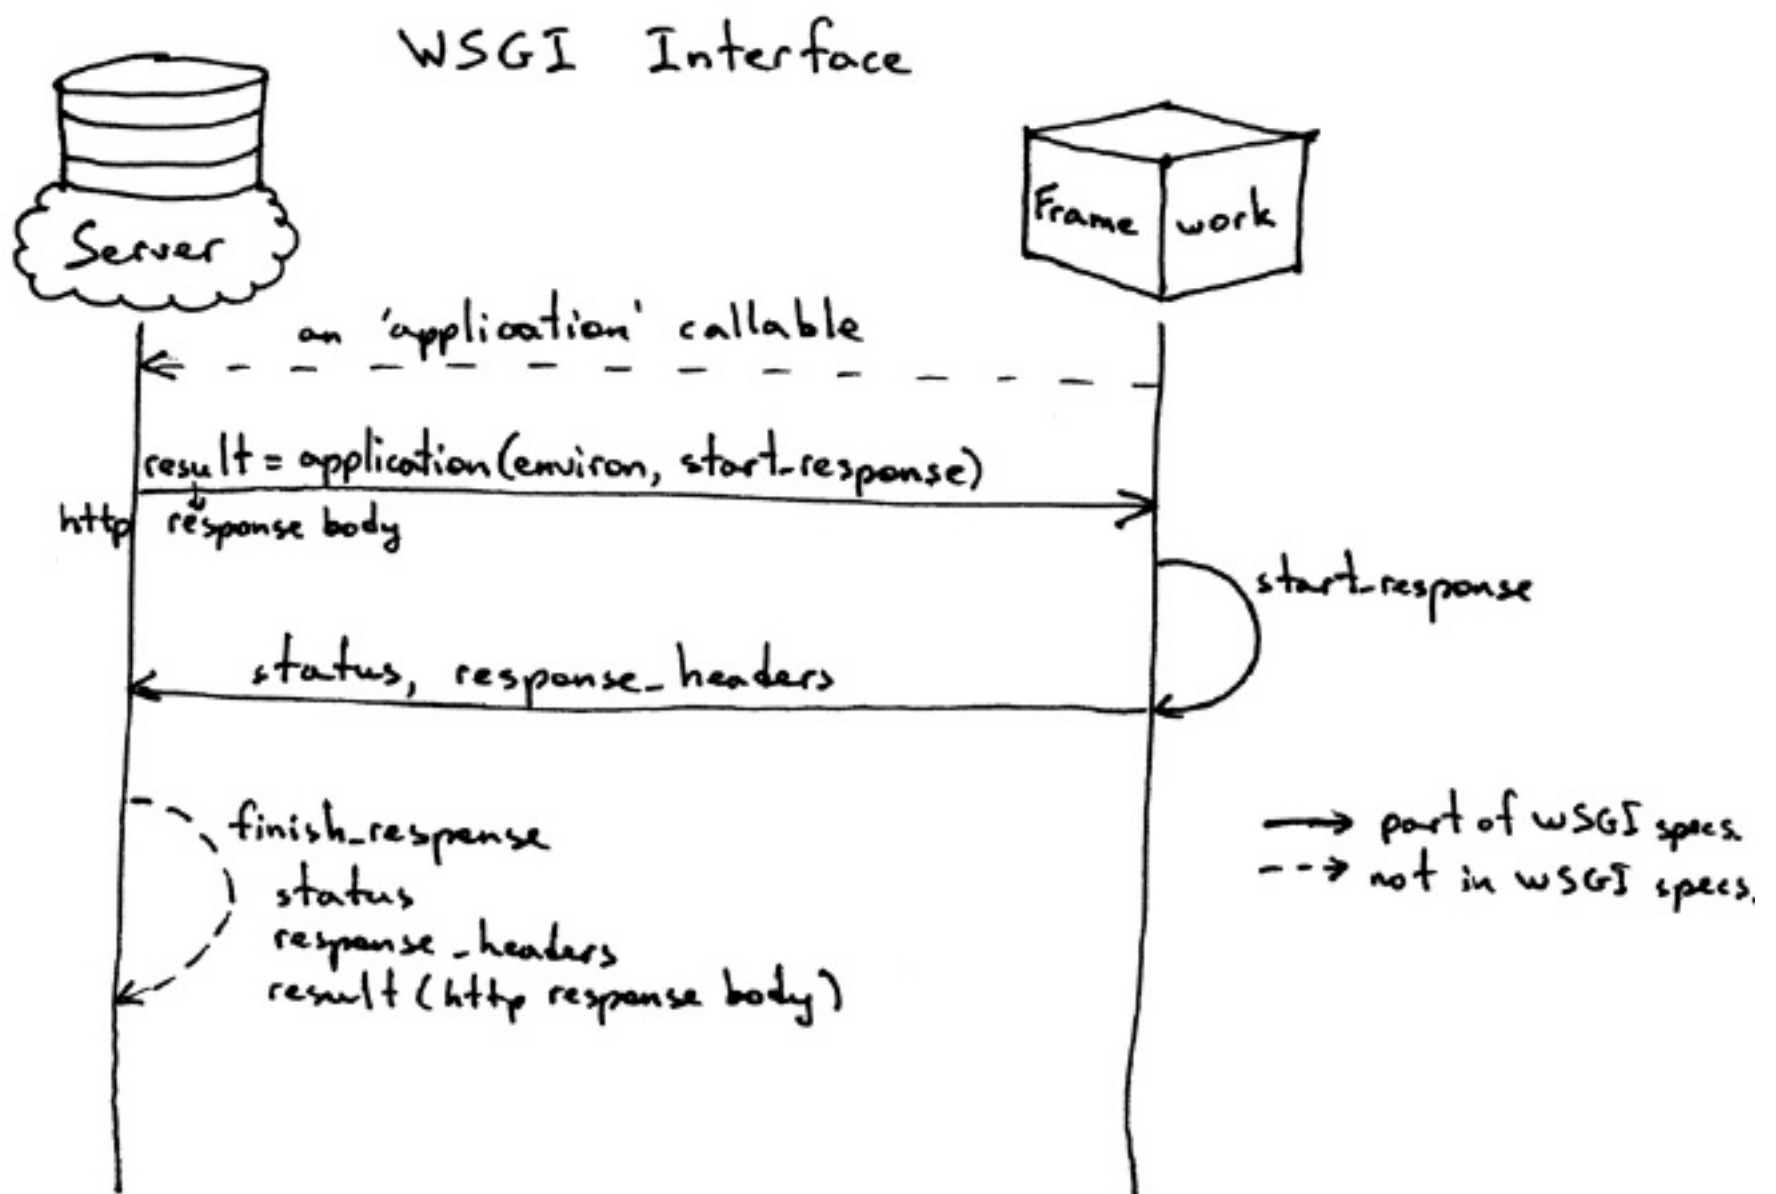 WSGI Interface
Server
Frame work
an 'application' callable
result = application(environ, start_response)
http response body
start_response
status, response_headers
finish_response
status
response_headers
result (http response body)
part of WSGI specs.
not in WSGI specs.